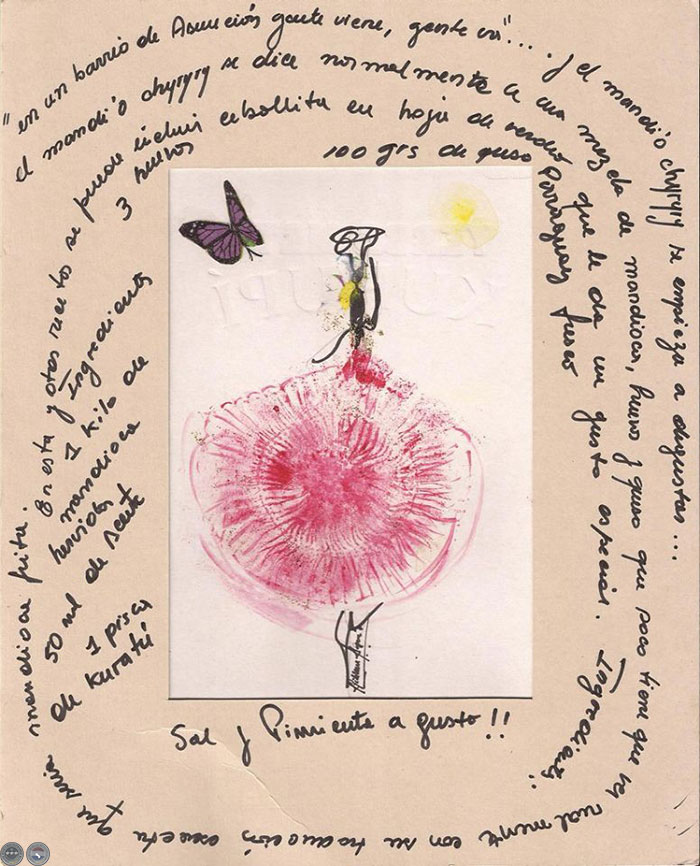 "en un barrio de Asunción gente viene, gente vá".... y el mandi'o chyryry se empieza a degustar...
el mandi'o chyryry se dice normalmente a una mezcla de mandioca, huevo y queso que poco tiene que ver realmente con su traducción que seria mandioca frita.
En esta y otras recetas se puede incluir cebollita en hoja de verdeo que le da un gusto especial. Ingredients:
Ingredients
1 kilo de
mandioca
hervida
50 ml de aceite
1 pisca
de kuratũ
3 huevos
100 grs de queso Paraguay fresco
Sal y Pimienta a gusto!!